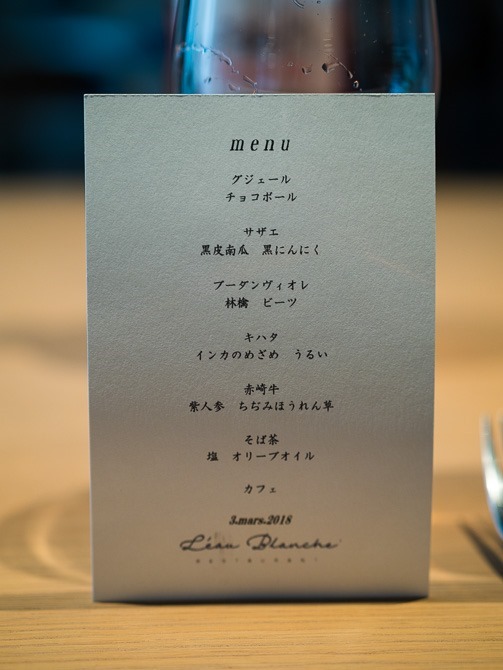 menu
グジェール
チョコボール
サザエ
黒皮南瓜　黒にんにく
ブーダンヴィオレ
林檎　ビーツ
キハタ
インカのめざめ　うるい
赤崎牛
紫人参　ちぢみほうれん草
そば茶
塩　オリーブオイル
カフェ
3.mars.2018
L'eau Blanche
RESTAURANT